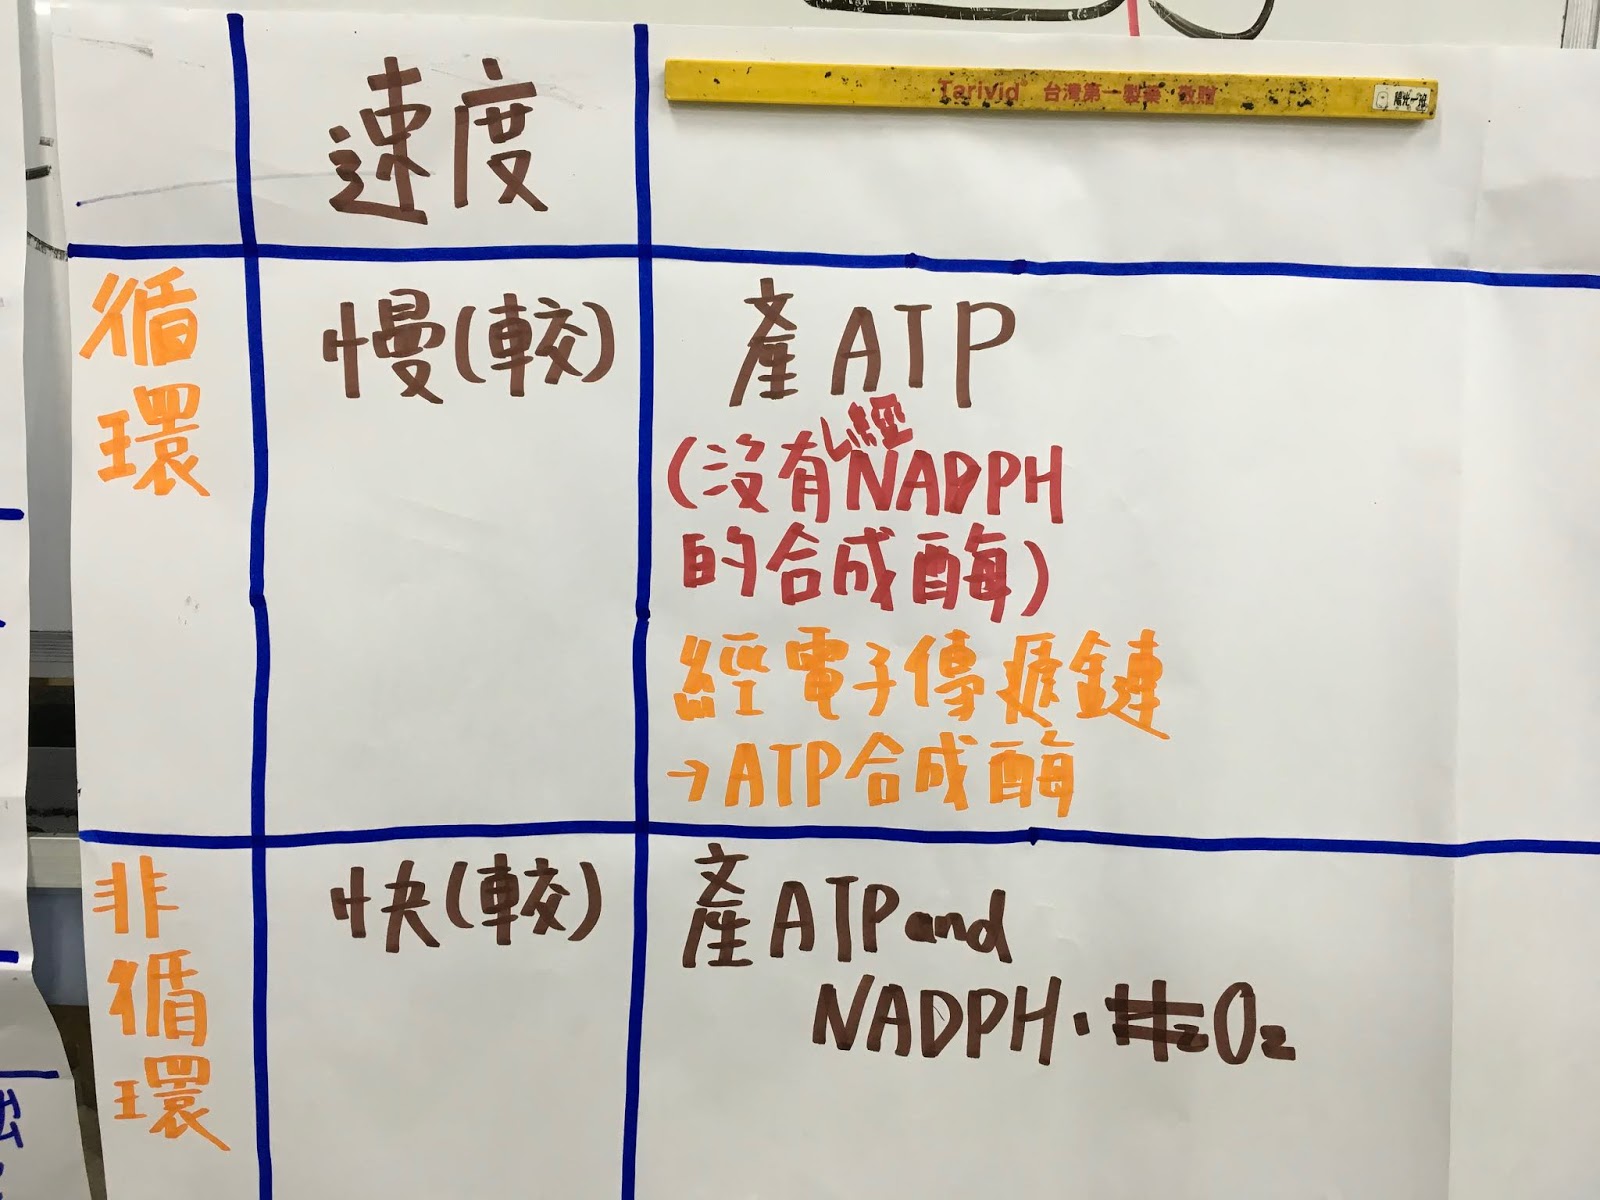 Tarivid® 台灣第一製藥 敬贈
陽光一班
速度
循
環
慢(較)
產ATP
經
(沒有NADPH
的合成酶)
經電子傳遞鏈
→ATP合成酶
非
循
環
快(較)
產ATP and
NADPH · H₂O₂